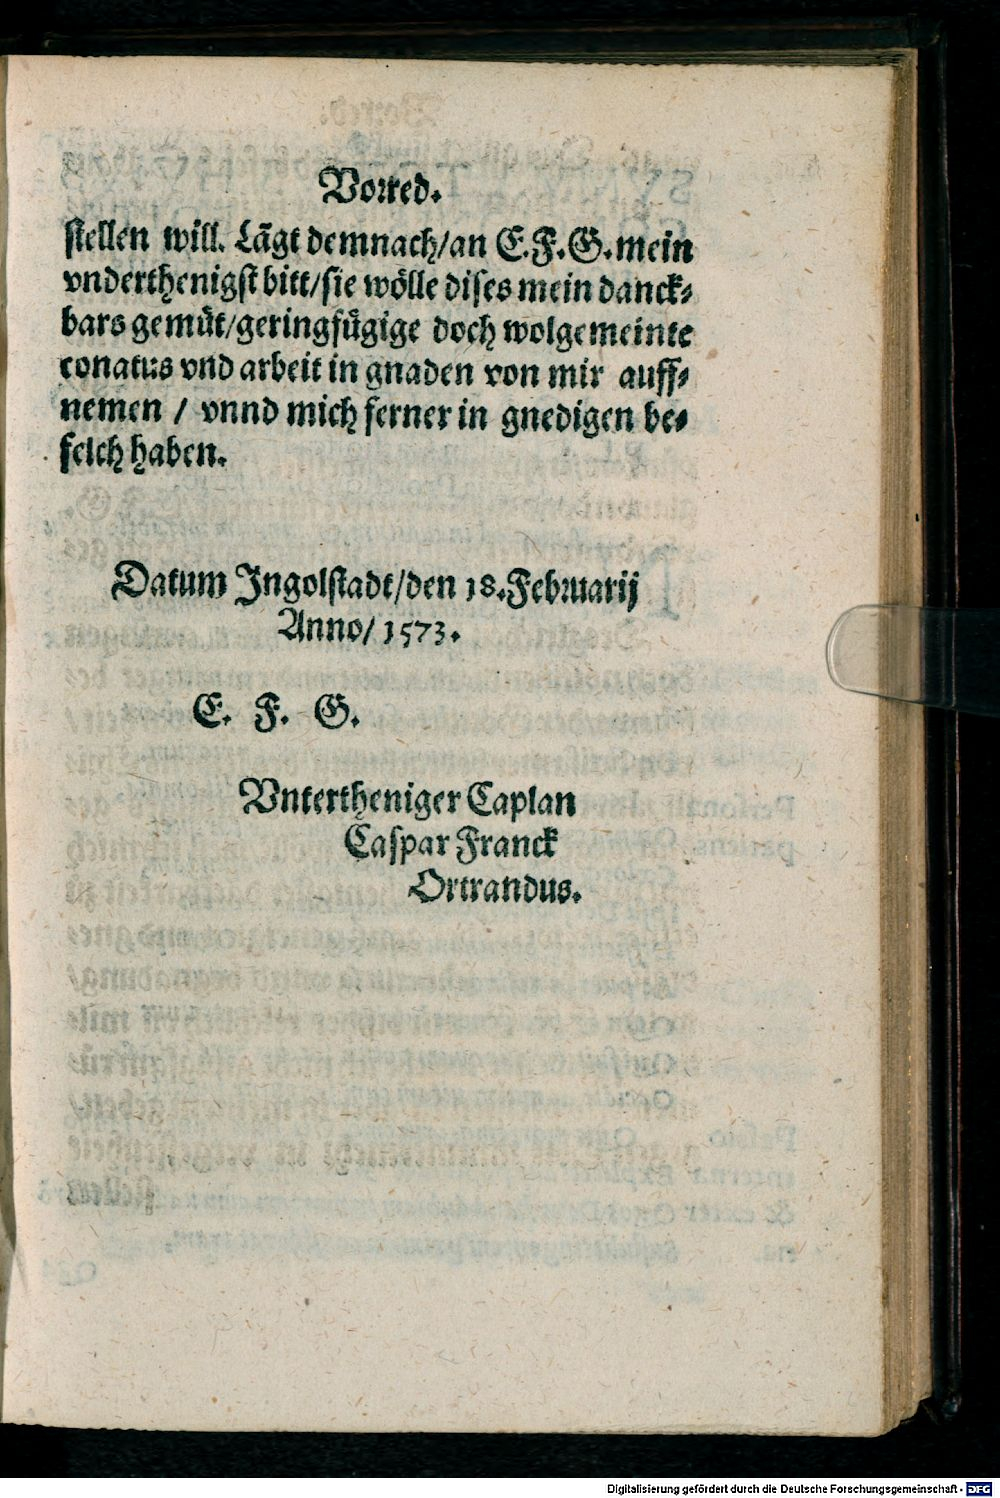 Vorred.
stellen will. Lãgt demnach/an E.F.G. mein
vnderthenigst bitt/sie wölle dises mein danck⸗
bars gemüt/geringfügige doch wolgemeinte
conatus vnd arbeit in gnaden von mir auff⸗
nemen / vnnd mich ferner in gnedigen be⸗
felch haben.
Datum Ingolstadt/den 18. Februarij
Anno/ 1573.
E. F. G.
Vntertheniger Caplan
Caspar Franck
Ortrandus.
Digitalisierung gefördert durch die Deutsche Forschungsgemeinschaft - DFG